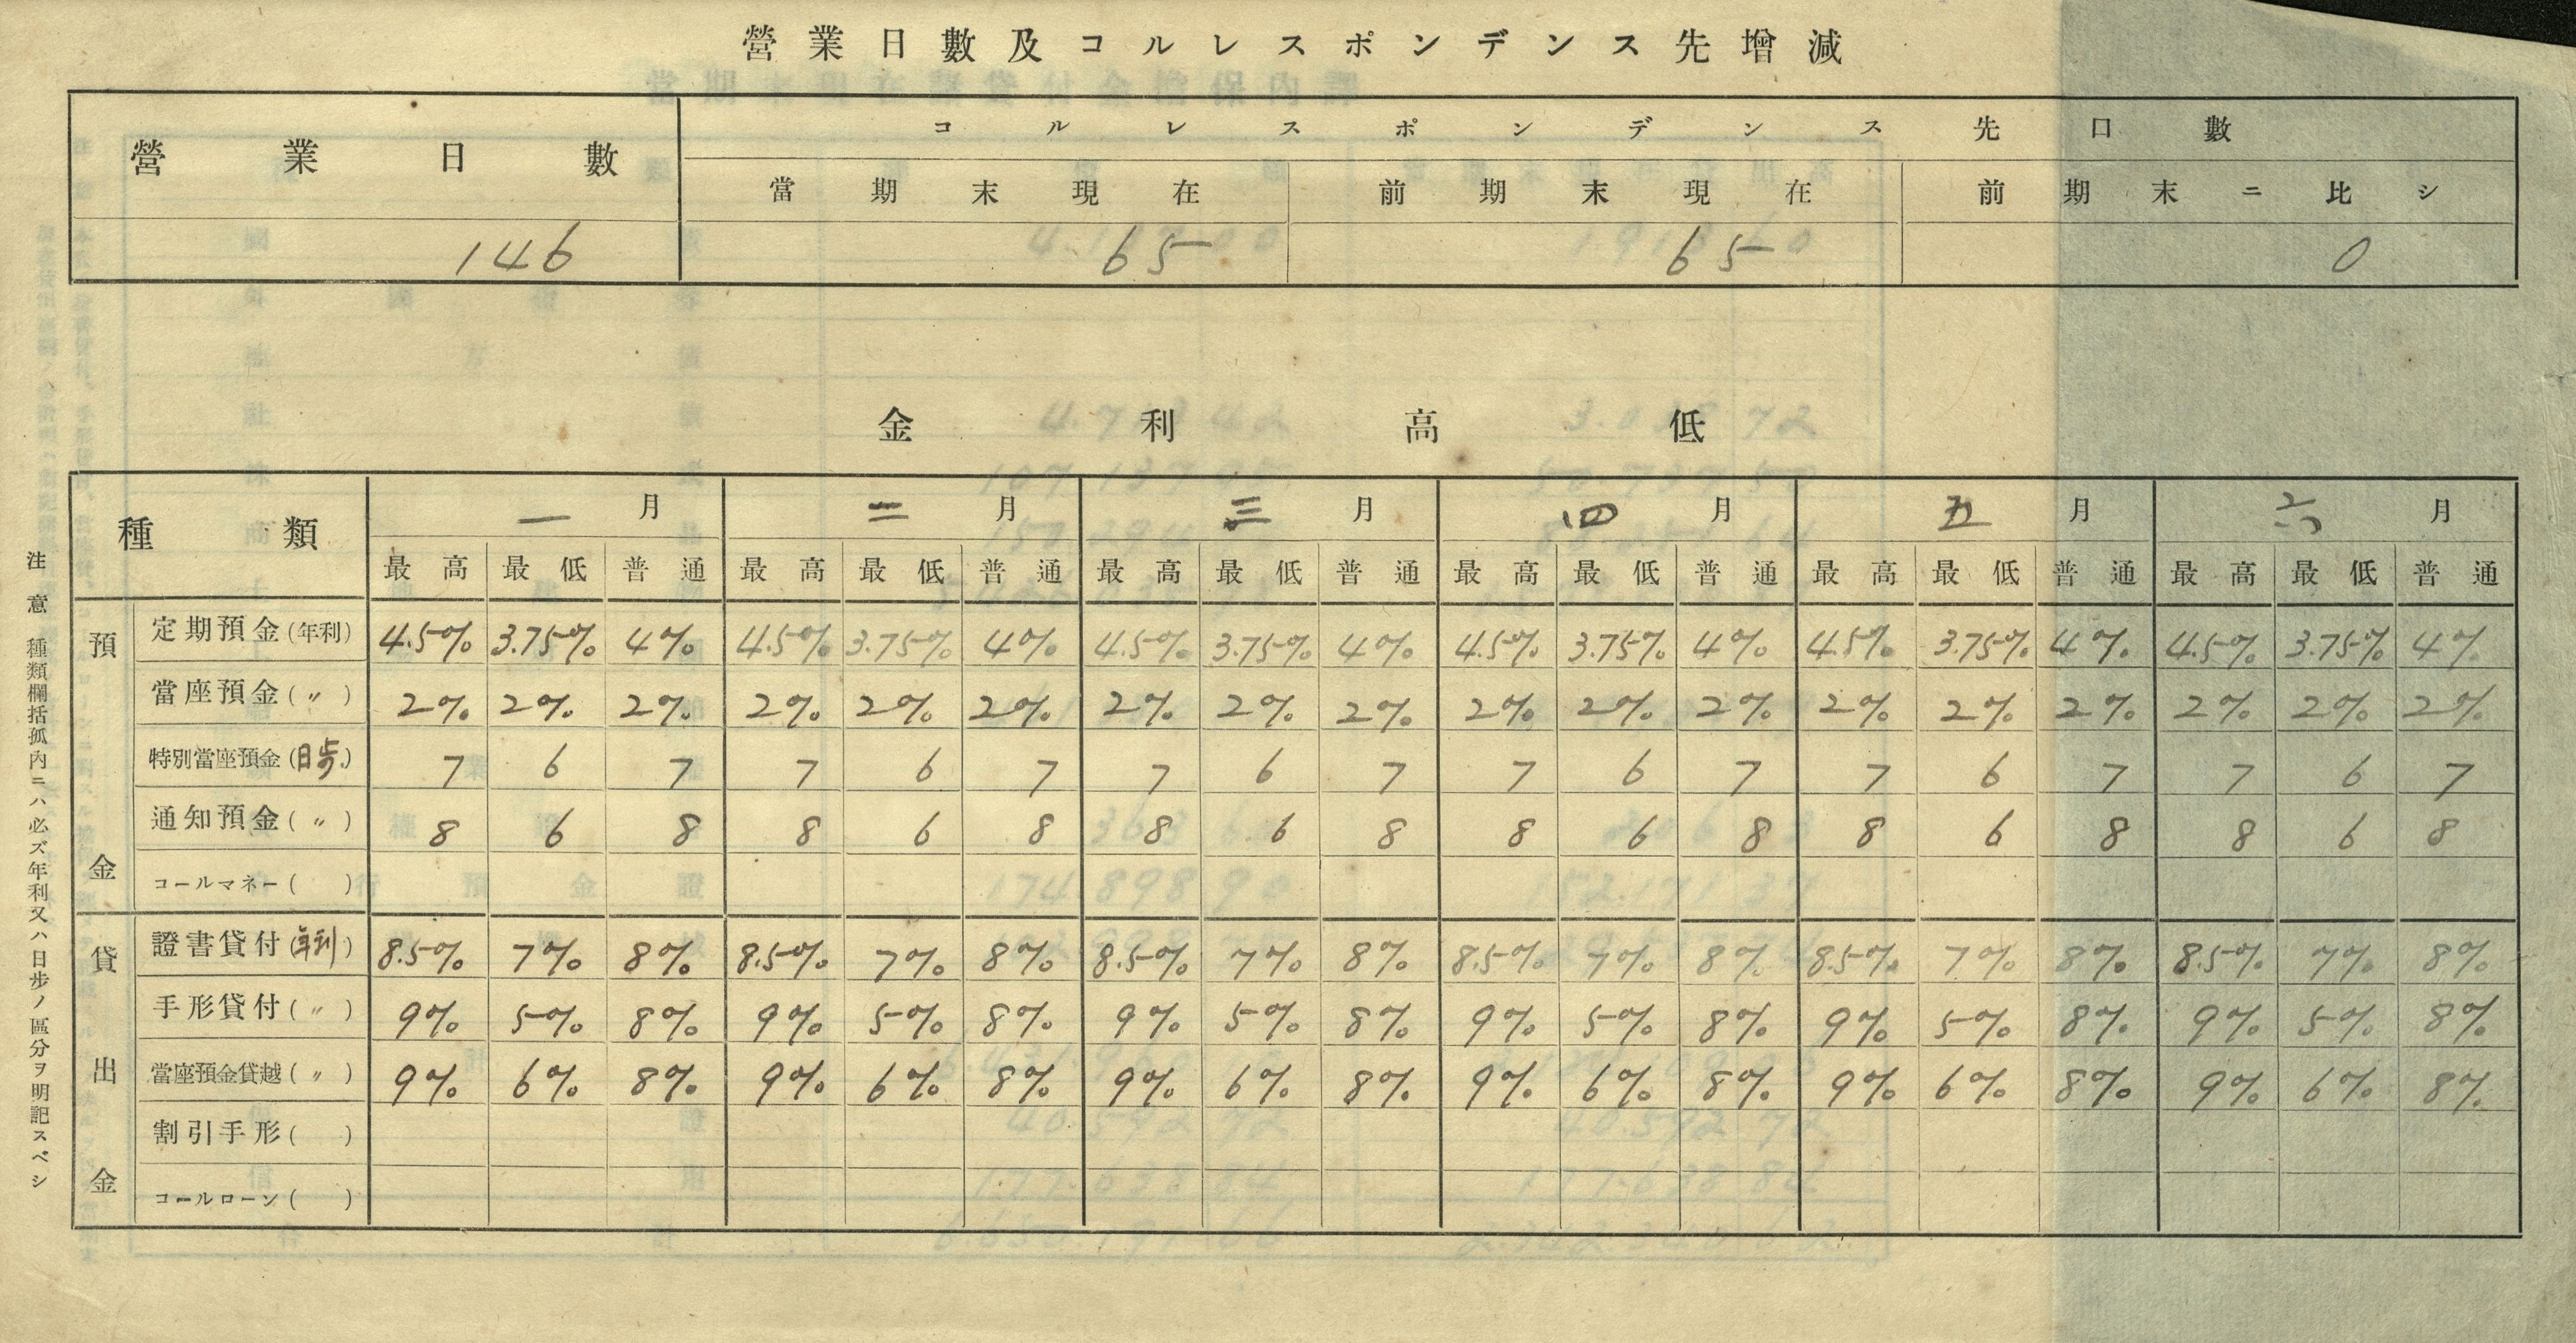 營業日數及コルレスポンデンス先增減
營業日數 コルレスポンデンス先口數
當期末現在 前期末現在 前期末ニ比シ
146 65 65 0
金利高低
種類 一月 二月 三月 四月 五月 六月
最高 最低 普通 最高 最低 普通 最高 最低 普通 最高 最低 普通 最高 最低 普通 最高 最低 普通
預金
定期預金(年利) 4.5% 3.75% 4% 4.5% 3.75% 4% 4.5% 3.75% 4% 4.5% 3.75% 4% 4.5% 3.75% 4% 4.5% 3.75% 4%
當座預金(〃) 2% 2% 2% 2% 2% 2% 2% 2% 2% 2% 2% 2% 2% 2% 2% 2% 2% 2%
特別當座預金(日歩) 7 6 7 7 6 7 7 6 7 7 6 7 7 6 7 7 6 7
通知預金(〃) 8 6 8 8 6 8 8 6 8 8 6 8 8 6 8 8 6 8
コールマネー( )
貸出金
證書貸付(年利) 8.5% 7% 8% 8.5% 7% 8% 8.5% 7% 8% 8.5% 7% 8% 8.5% 7% 8% 8.5% 7% 8%
手形貸付(〃) 9% 5% 8% 9% 5% 8% 9% 5% 8% 9% 5% 8% 9% 5% 8% 9% 5% 8%
當座預金貸越(〃) 9% 6% 8% 9% 6% 8% 9% 6% 8% 9% 6% 8% 9% 6% 8% 9% 6% 8%
割引手形( )
コールローン( )
注意 種類欄括孤內ニハ必ズ年利又ハ日步ノ區分ヲ明記スベシ